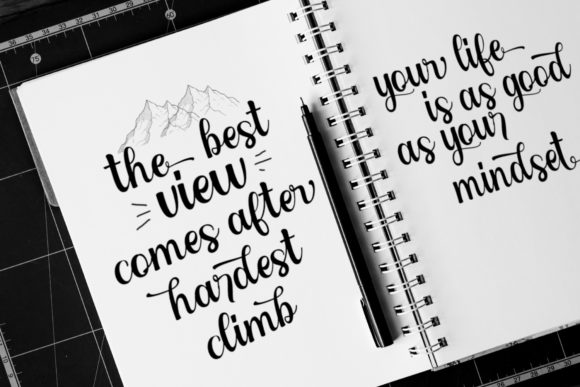 the best
view
comes after
hardest
climb
your life
is as good
as your
mindset